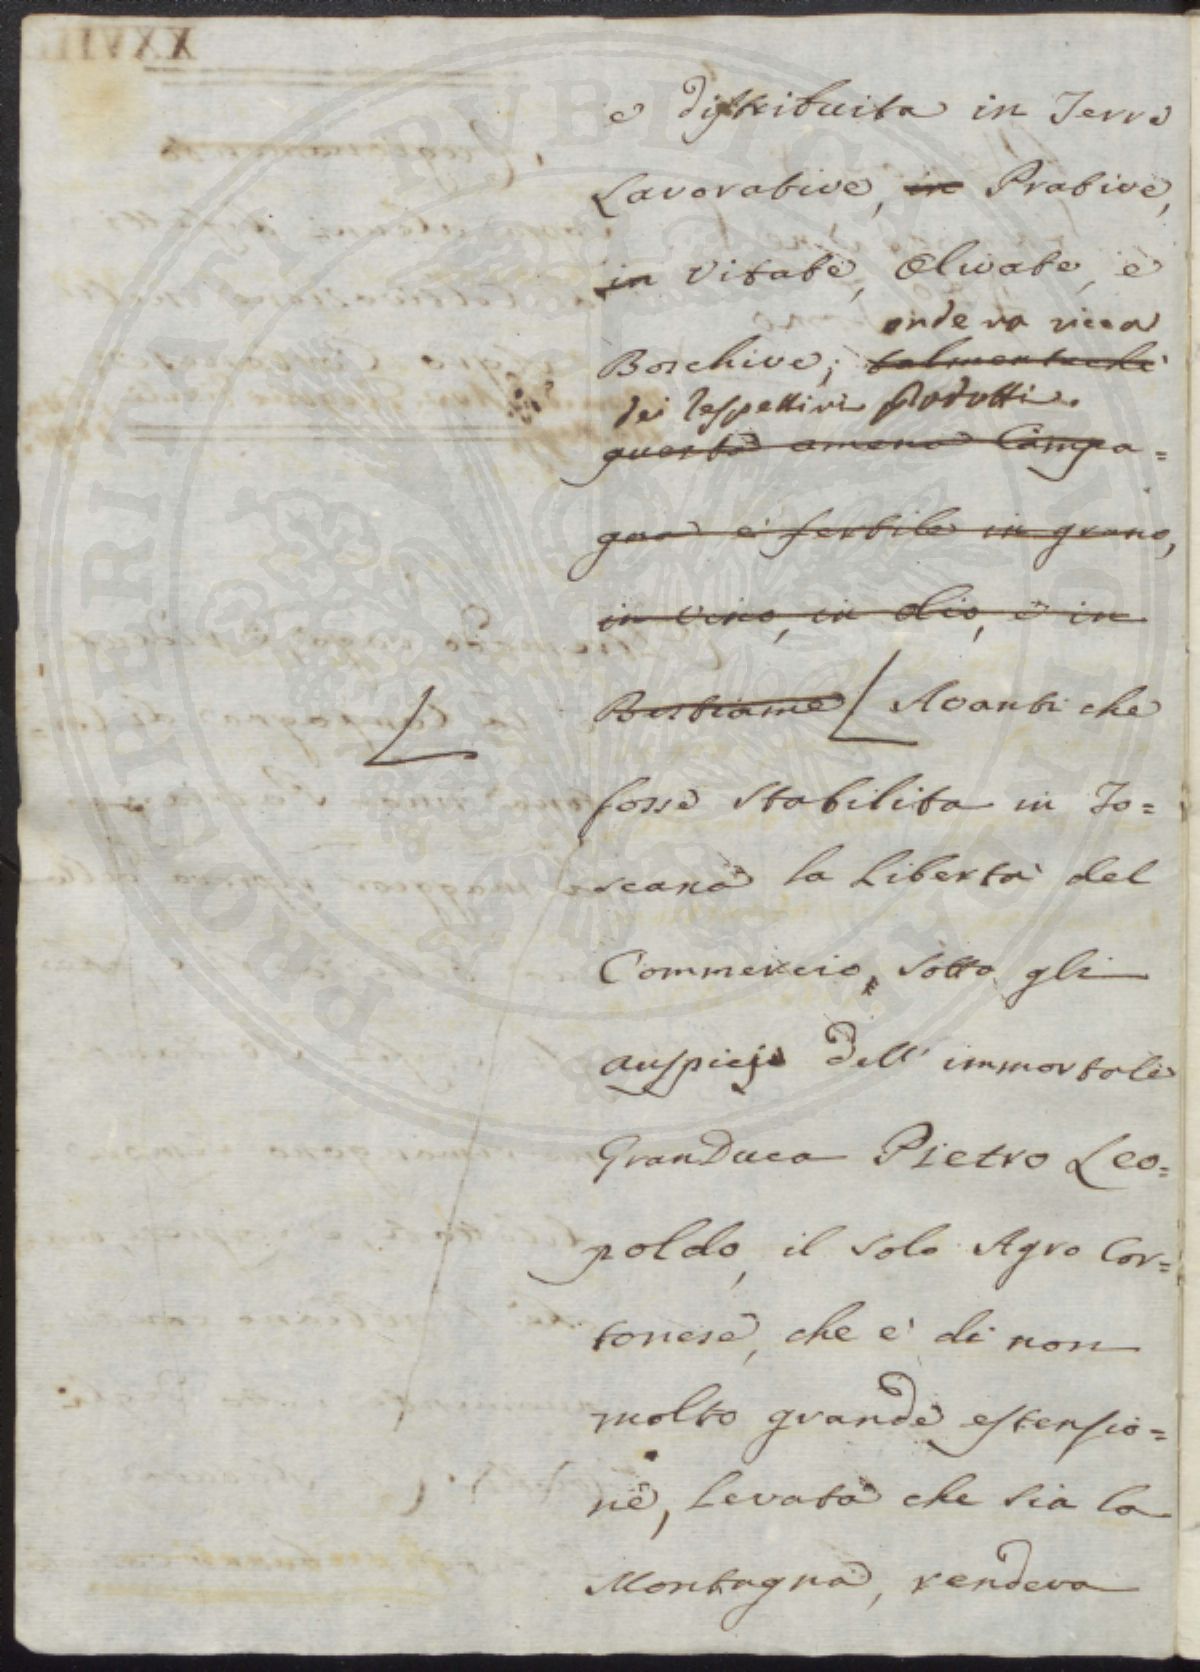 e distribuita in Terre
Lavorative, in Prative,
in Vitate, Olivate, e
onde va ricca
Boschive; talmentechè
dei respettivi Prodotti.
questa amena Campa=
gna è fertile in grano,
in vino, in olio, e in
Bestiame Avanti che
fosse stabilita in To=
scana la Libertà del
Commercio, sotto gli
auspicj dell' immortale
GranDuca Pietro Leo=
poldo, il solo Agro Cor=
tonese, che è di non
molto grande estensio=
ne, levata che sia la
Montagna, rendeva